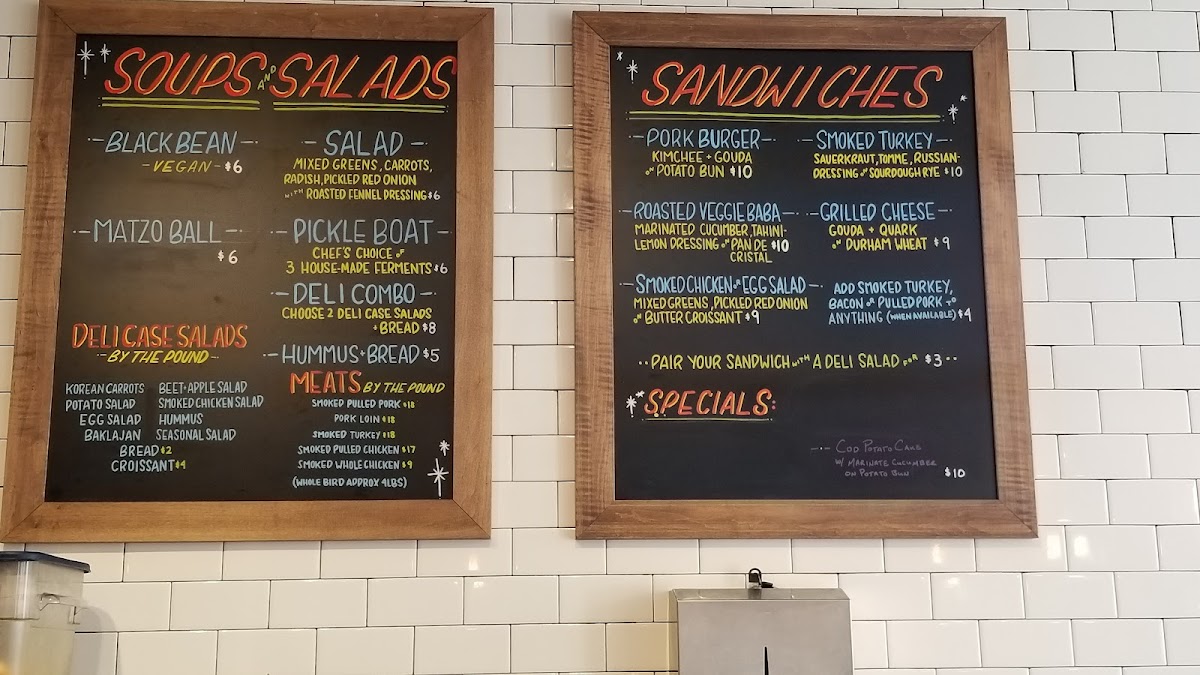 SOUPS AND SALADS
-BLACK BEAN-
-VEGAN- $6
-MATZO BALL-
$6
-SALAD-
MIXED GREENS, CARROTS,
RADISH, PICKLED RED ONION
WITH ROASTED FENNEL DRESSING $6
-PICKLE BOAT-
CHEF'S CHOICE OF
3 HOUSE-MADE FERMENTS $6
-DELI COMBO-
CHOOSE 2 DELI CASE SALADS
+ BREAD $8
-HUMMUS + BREAD $5
DELI CASE SALADS
-BY THE POUND-
KOREAN CARROTS
POTATO SALAD
EGG SALAD
BAKLAJAN
BEET + APPLE SALAD
SMOKED CHICKEN SALAD
HUMMUS
SEASONAL SALAD
BREAD $2
CROISSANT $4
MEATS BY THE POUND
SMOKED PULLED PORK $18
PORK LOIN $18
SMOKED TURKEY $18
SMOKED PULLED CHICKEN $17
SMOKED WHOLE CHICKEN $9
(WHOLE BIRD APPROX 4LBS)
SANDWICHES
-PORK BURGER-
KIMCHEE + GOUDA
ON POTATO BUN $10
-SMOKED TURKEY-
SAUERKRAUT, TOMME, RUSSIAN-
DRESSING ON SOURDOUGH RYE $10
-ROASTED VEGGIE BABA-
MARINATED CUCUMBER, TAHINI-
LEMON DRESSING ON PAN DE $10
CRISTAL
-GRILLED CHEESE-
GOUDA + QUARK
ON DURHAM WHEAT $9
-SMOKED CHICKEN OR EGG SALAD-
MIXED GREENS, PICKLED RED ONION
ON BUTTER CROISSANT $9
ADD SMOKED TURKEY,
BACON OR PULLED PORK TO
ANYTHING (WHEN AVAILABLE) $4
--PAIR YOUR SANDWICH WITH A DELI SALAD FOR $3--
SPECIALS:
-- COD POTATO CAKE
W/ MARINATE CUCUMBER
ON POTATO BUN $10